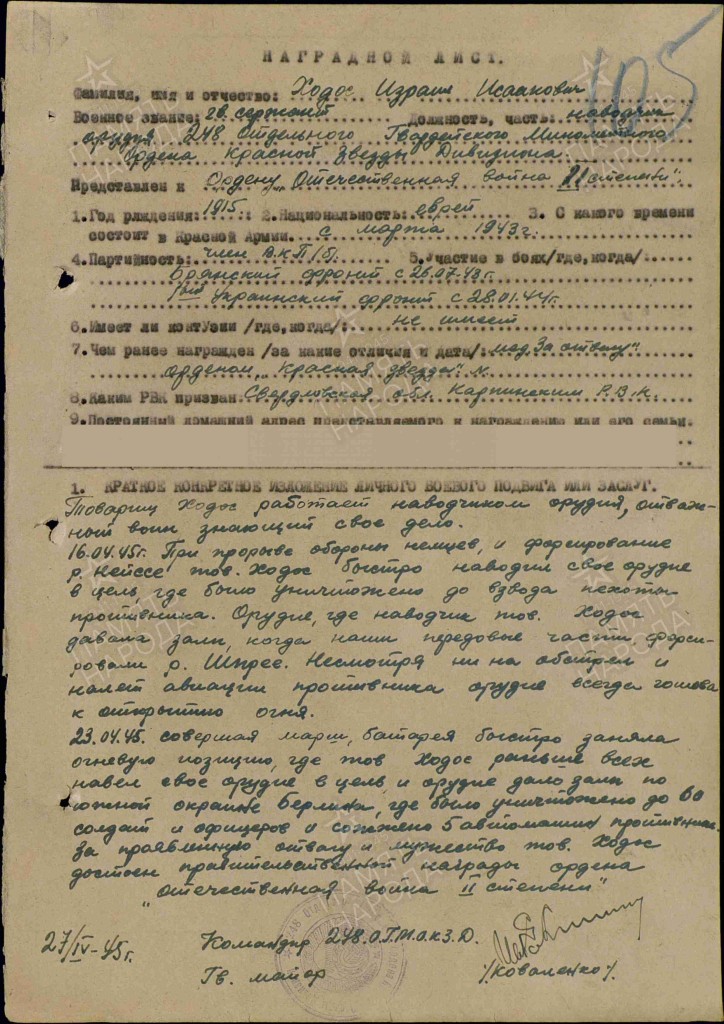 105
НАГРАДНОЙ ЛИСТ.
Фамилия, имя и отчество: Ходос Израил Исаакович
Военное звание: гв. сержант Должность, часть: наводчик
орудия 248 отдельного Гвардейского Минометного
Ордена Красной Звезды Дивизиона.
Представлен к Ордену „Отечественная война II степени".
1. Год рждения: 1915. 2. Национальность: еврей 3. С какого времени
состоит в Красной Армии. с марта 1943г.
4. Партийность: член ВКП/б/. 5. Участие в боях/где, когда/:
Брянский фронт с 26.07.43г.
1ый Украинский фронт с 28.01.44г.
6. Имеет ли контУзии /где, когда/: не имеет
7. Чем ранее награжден /за какие отличия и дата/: мед. За отвагу"
орденом „Красная звезда" м.
8. Каким РВК призван: Свердловская обл. Карпинским Р.В.К.
9. Постоянный домашний адрес представляемого к награждению или его семьи.
1. КРАТКОЕ КОНКРЕТНОЕ ИЗЛОЖЕНИЕ ЛИЧНОГО БОЕВОГО ПОДВИГА ИЛИ ЗАСЛУГ.
Товарищ Ходос работает наводчиком орудия, отваж-
ный воин знающий свое дело.
16.04.45г. При прорыве обороны немцев, и форсирование
р. Нейссе тов. Ходос быстро наводил свое орудие
в цель, где было уничтожено до взвода пехоты
противника. Орудие, где наводчик тов. Ходос
давала залп, когда наши передовые части форси-
ровали р. Шпрее. Несмотря ни на обстрел и
налет авиации противника орудие всегда готова
к открытию огня.
23.04.45. совершая марш, батарея быстро заняла
огневую позицию, где тов Ходос раньше всех
навел свое орудие в цель, и орудие дало залп по
южной окраине Берлина, где было уничтожено до 60
солдат и офицеров и сожжено 5 автомашин противника.
За проявленную отвагу и мужество тов. Ходос
достоен правительственной награды ордена
„Отечественная война II степени"
27/IV-45г. Командир 248.О.Г.М.О.К.З.Д.
Гв. майор /Коваленко/.